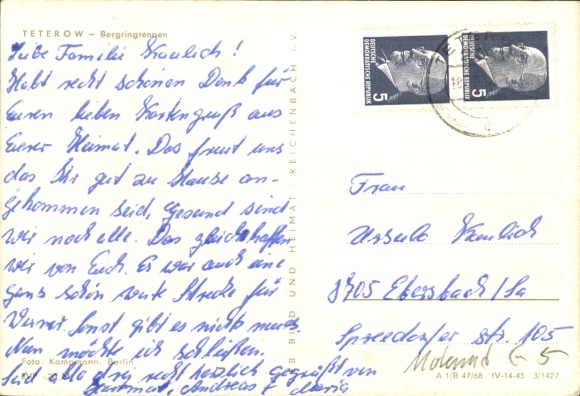 TETEROW – Bergringrennen
Liebe Familie Kaulich!
Habt recht schönen Dank für
Euren lieben Kartengruß aus
Eurer Heimat. Das freut uns
das Ihr gut zu Hause an-
gekommen seid, Gesund sind
wir noch alle. Das gleiche hoffen
wir von Euch. Es war auch eine
ganz schön weite Strecke für
Sonst gibt es nichts neues.
Nun möchte ich schließen.
Seid alle drei recht herzlich gegrüßt von
Hartmut, Andreas & Maria
Foto: Kampmann, Berlin
BILD UND HEIMAT REICHENBACH I. V.
DEUTSCHE
DEMOKRATISCHE
REPUBLIK
5
DEUTSCHE
DEMOKRATISCHE
REPUBLIK
5
Frau
Ursula Kaulich
8705 Ebersbach/Sa
Spreedorfer Str. 105
A 1/B 47/68 IV-14-45 3/1427